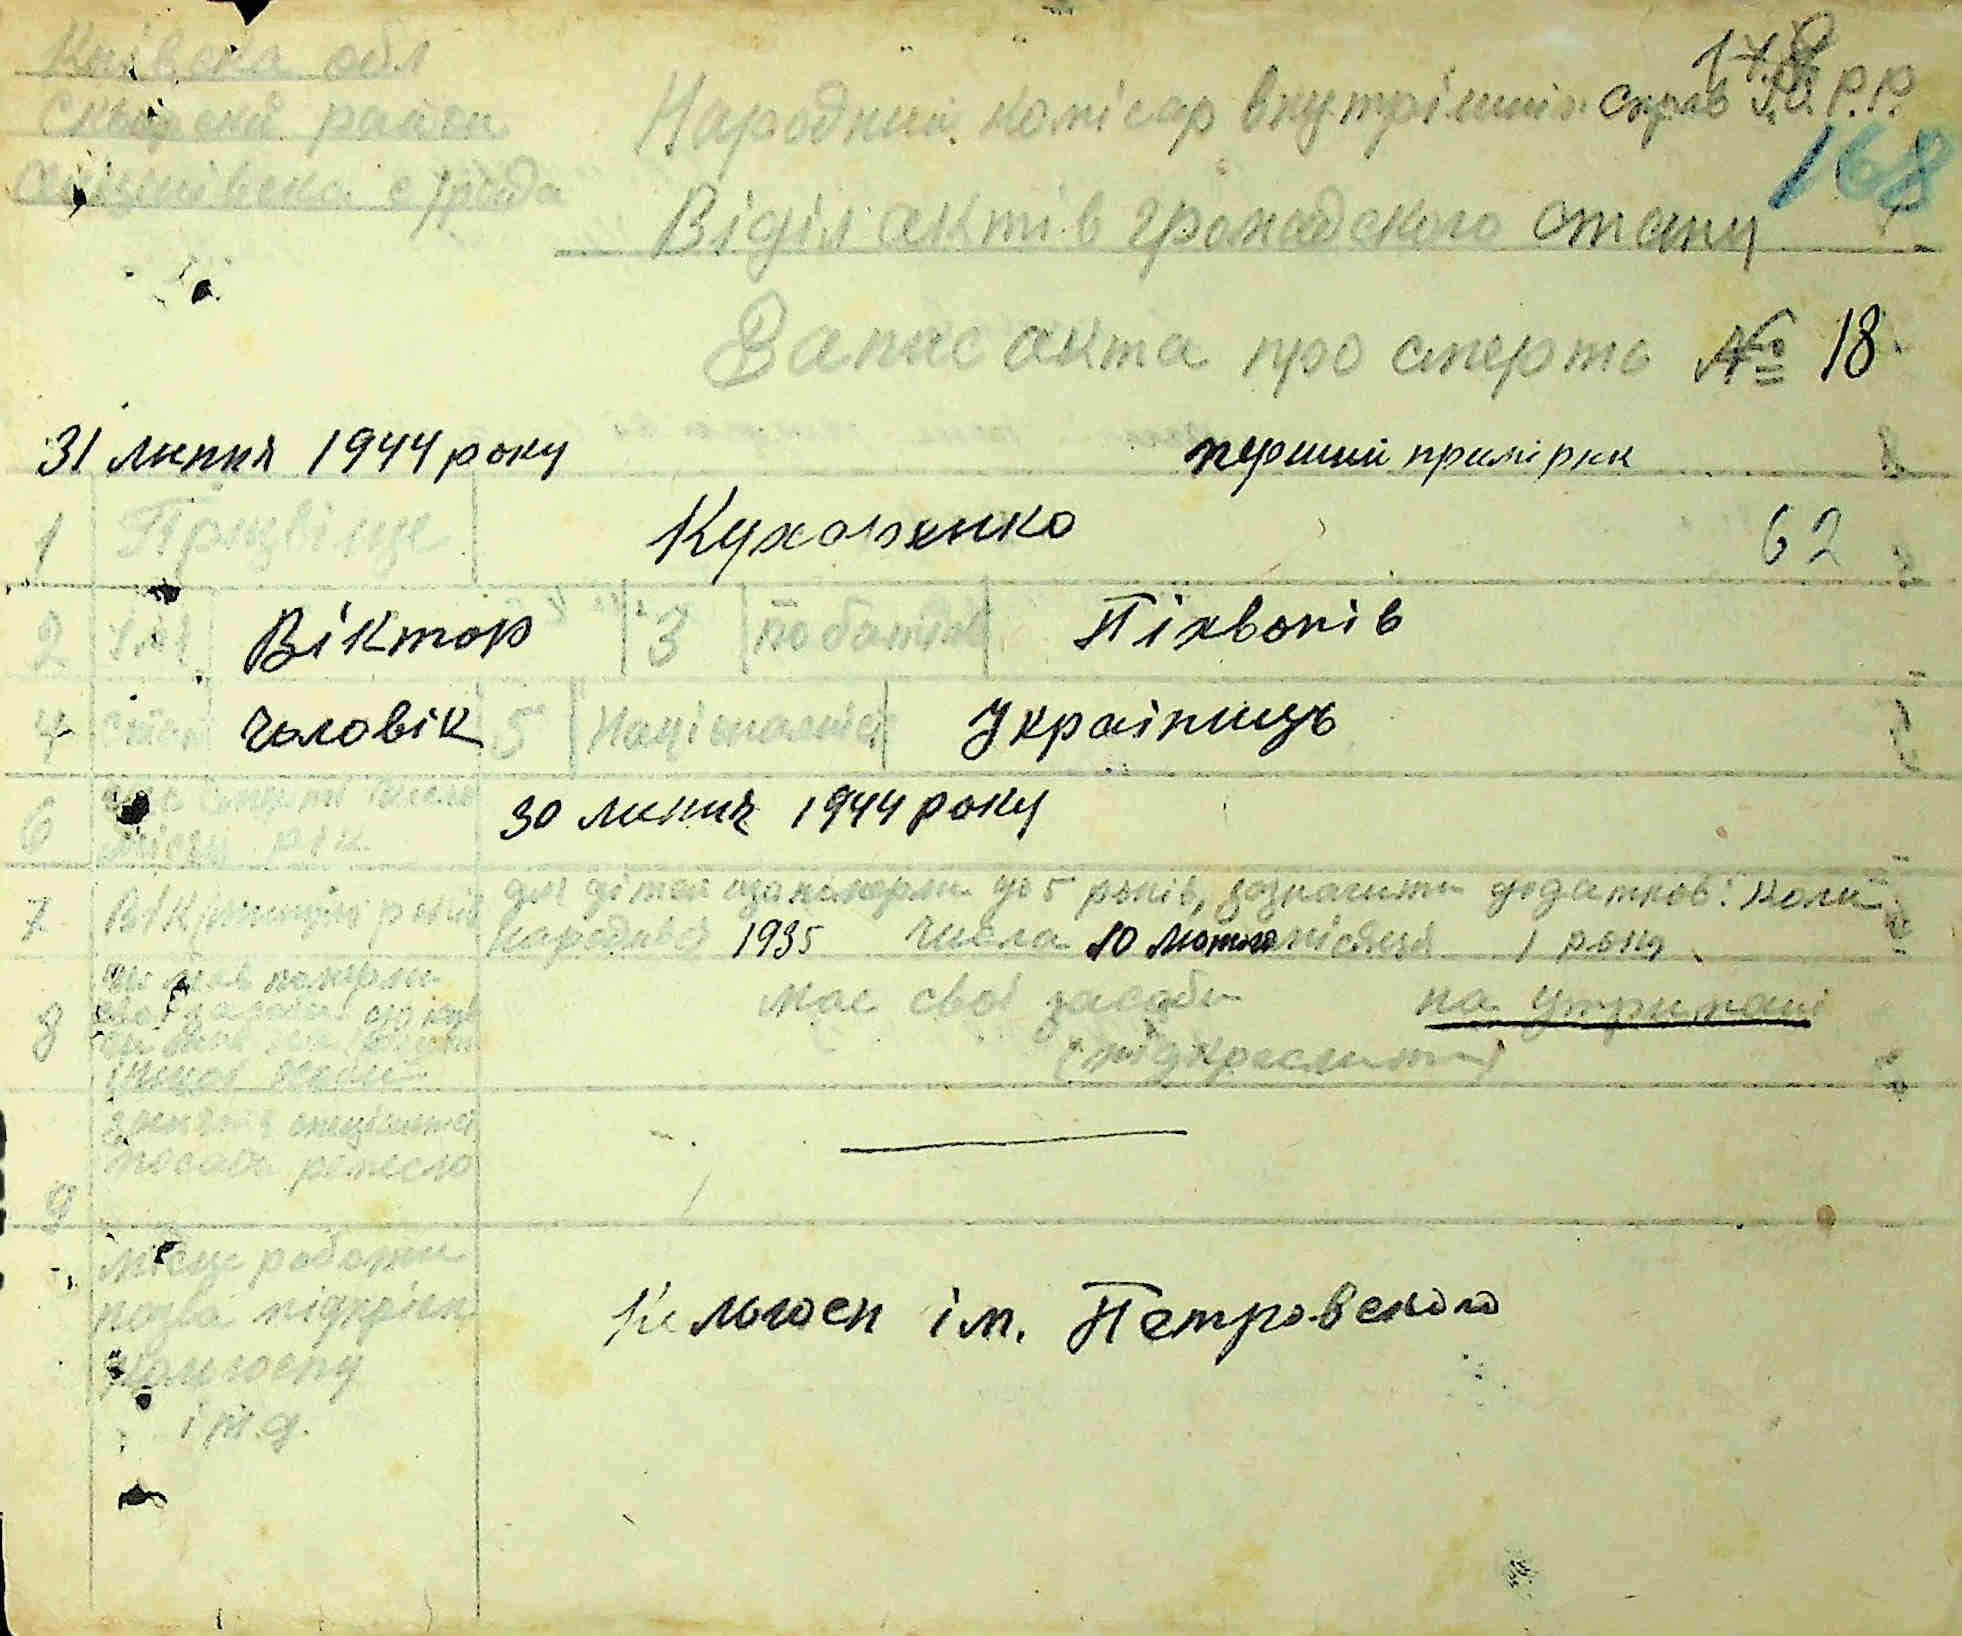 Київска обл
178
Сквирский район
Народний комісар внутрішніх справ У.С.Р.Р.
с/рада
168
Віділ актів громадского стану
Запис акта про смерть № 18
31 липня 1944 року перший примірник
1 Прізвіще Кухаренко 62
2 Імя Віктор 3 по батькові
4 Стать Чоловік 5 Національність Українець
6 Час смерті число
місяць рік 30 липня 1944 року
7 Вік для дітей що померли до 5 років, зазначити додатково: коли
народився 1935 числа 10 лютого місяця 1 року
8 має свої засоби на утримані
(підкреслити)
9 посада ремесло
місце работи
назва
колгоспу
і т.д.
Колгосп ім. Петровского